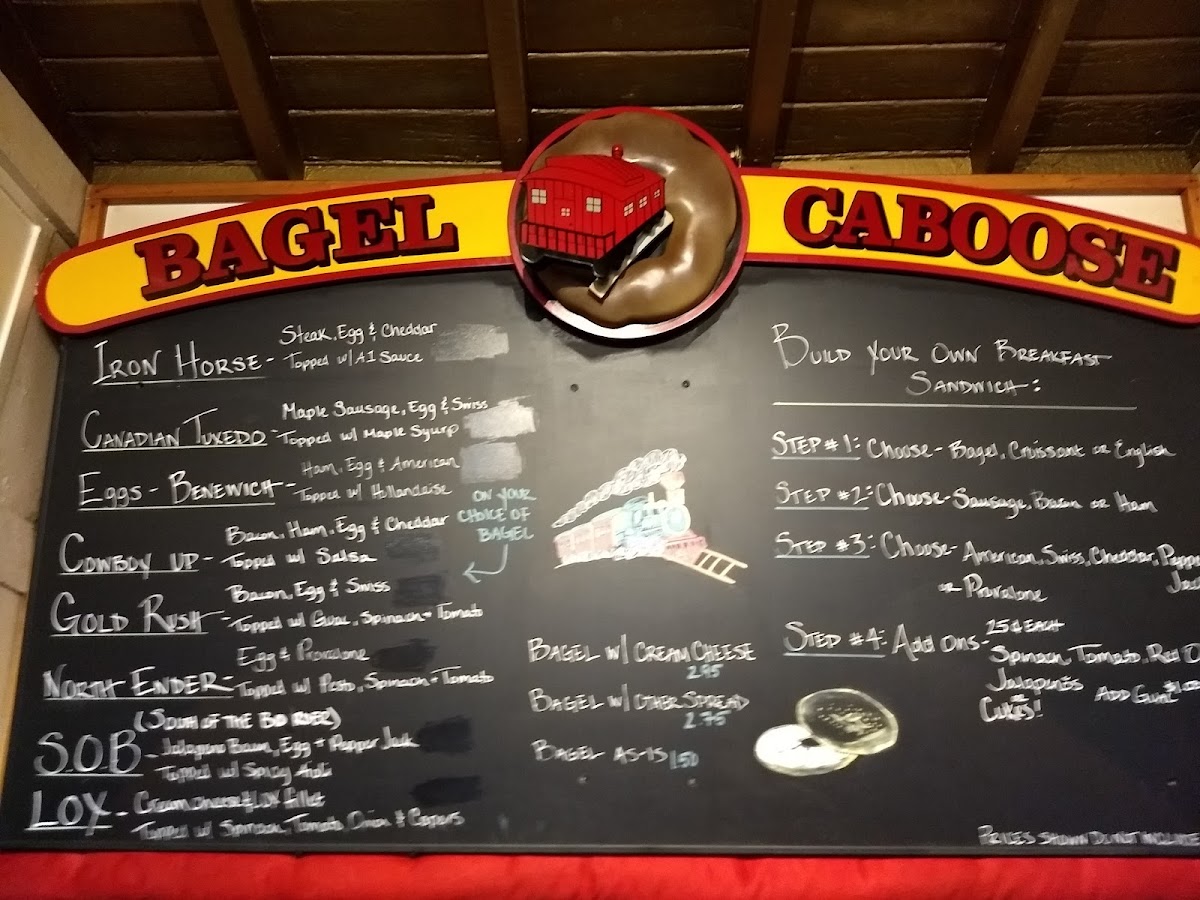 BAGEL CABOOSE
IRON HORSE - Steak, Egg & Cheddar
Topped w/ A1 Sauce
CANADIAN TUXEDO - Maple Sausage, Egg & Swiss
Topped w/ Maple Syurp
EGGS-BENEWICH - Ham, Egg & American
Topped w/ Hollandaise
COWBOY UP - Bacon, Ham, Egg & Cheddar
Topped w/ Salsa
GOLD RUSH - Bacon, Egg & Swiss
Topped w/ Guac, Spinach + Tomato
NORTH ENDER - Egg & Provalone
Topped w/ Pesto, Spinach + Tomato
(SOUTH OF THE BORDER)
S.O.B - Jalapeno Bacon, Egg + Pepper Jack
Topped w/ Spicy Aioli
LOX - Cream cheese & LOX fillet
Topped w/ Spinach, Tomato, Onion & Capers
ON YOUR
CHOICE OF
BAGEL
BAGEL W/ CREAM CHEESE
2.95
BAGEL W/ OTHER SPREAD
2.75
BAGEL AS-IS 1.50
BUILD YOUR OWN BREAKFAST
SANDWICH:
STEP #1: Choose - Bagel, Cruissant or English
STEP #2: Choose - Sausage, Bacon or Ham
STEP #3: Choose - American, Swiss, Cheddar, Pepper
Jack
or Provalone
STEP #4: Add ons - 25¢ EACH
Spinach, Tomato, Red
Jalapeños ADD Guac
or
Cukes!
PRICES SHOWN DO NOT INCLUDE